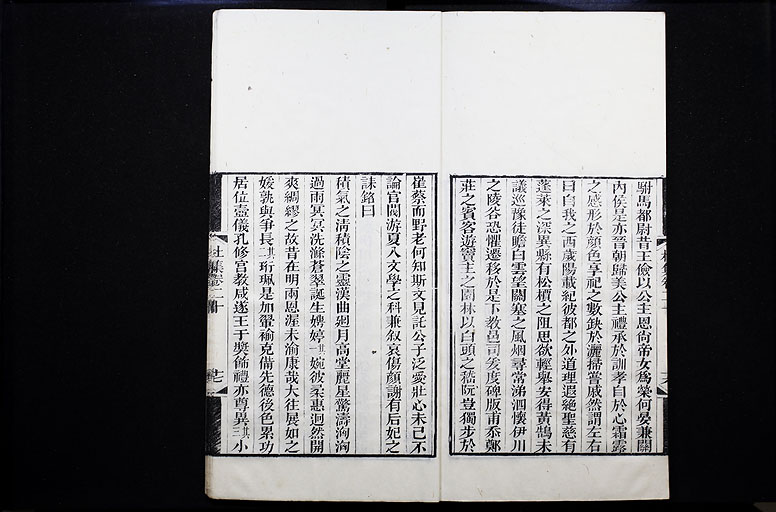 駙馬都尉昔王儉以公主恩尚帝女為榮何晏兼關
內侯是亦晉朝歸美公主禮承於訓孝自於心霜露
之感形於顏色享祀之數缺於灑掃嘗戚然謂左右
曰自我之西歲陽載紀彼都之外道理遐絕聖慈有
蓬萊之深異縣有松檟之阻思欲輕舉安得黃鵠未
議巡豫徒瞻白雲望關塞之風烟尋常涕泗懷伊川
之陵谷恐懼遷移於是下教邑司爰度碑版甫忝鄭
莊之賓客遊竇主之園林以白頭之嵇阮豈獨步於
崔蔡而野老何知斯文見託公子泛愛壯心未已不
論官閥游夏入文學之科兼叙哀傷顏謝有后妃之
誄銘曰
積氣之淸積陰之靈漢曲廻月高堂麗星驚濤洶洶
過雨冥冥洗滌蒼翠誕生娉婷其一婉彼柔惠迥然開
爽綢繆之故昔在明兩恩渥未渝康哉大往展如之
媛孰與爭長其二珩珮是加翬褕克備先德後色累功
居位壼儀孔修宮教咸遂王于奬飾禮亦尊異其三小
杜集卷二十
十七